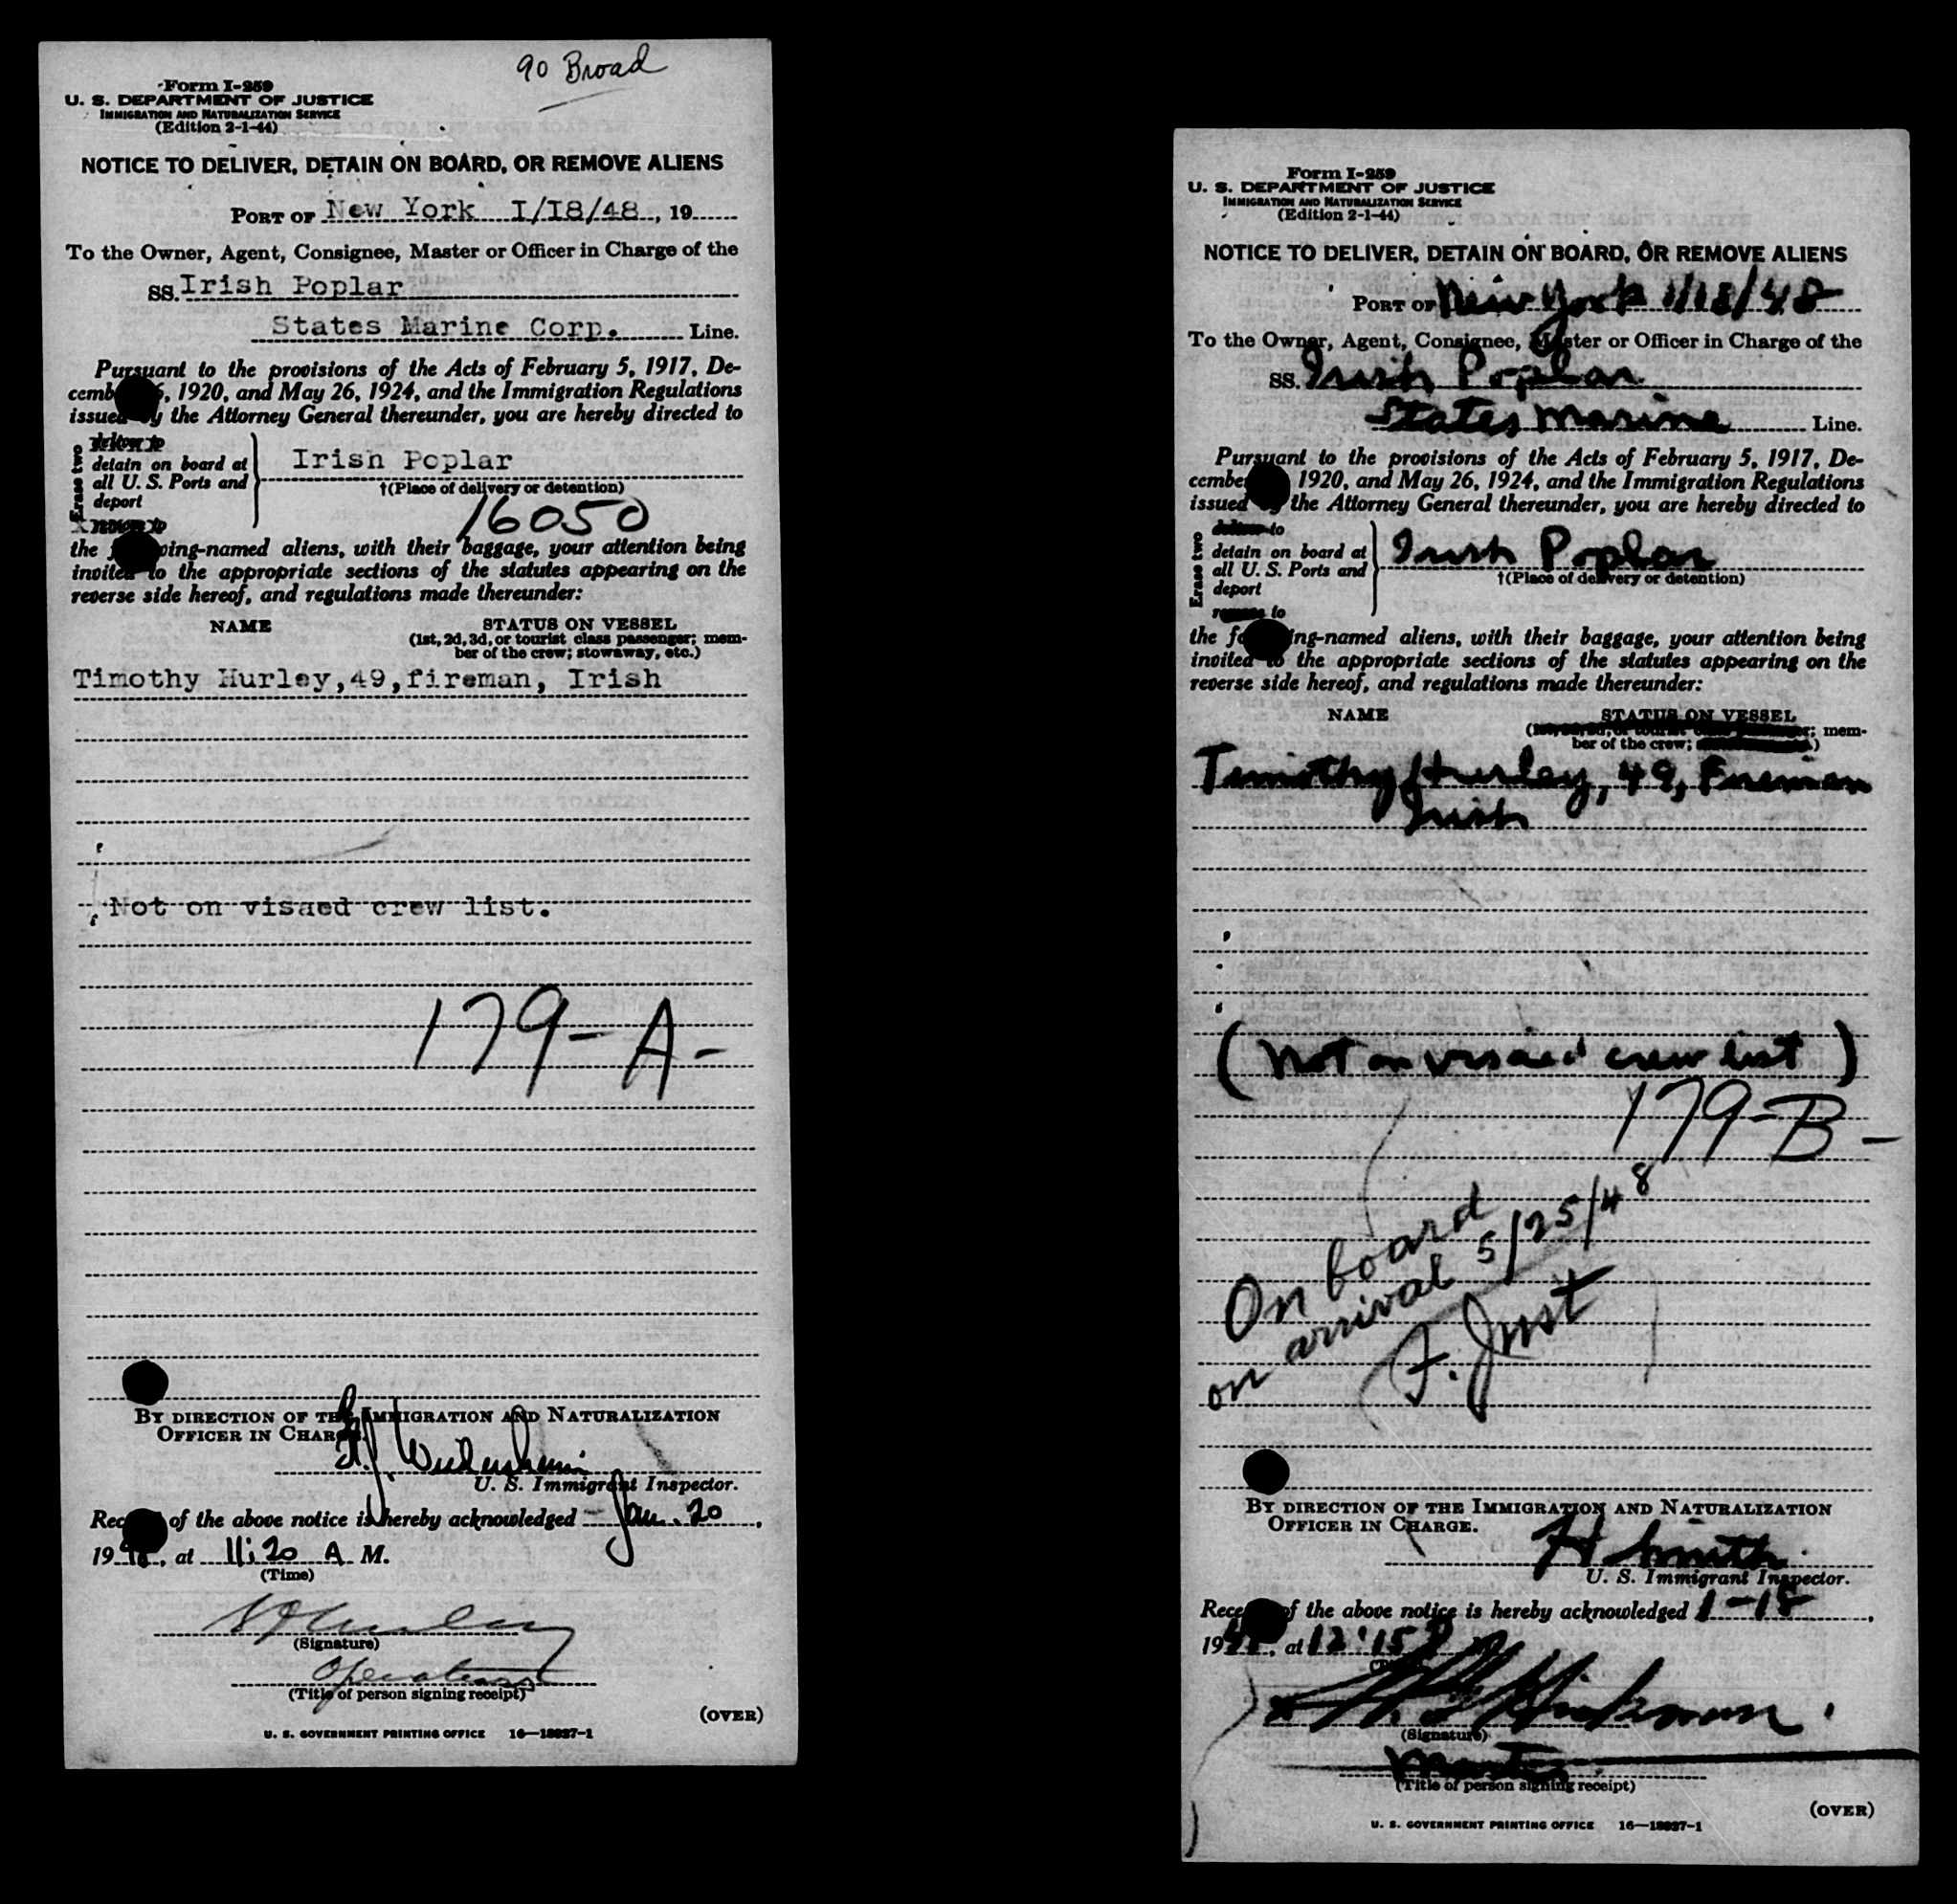 90 Broad
Form I-259
U. S. DEPARTMENT OF JUSTICE
IMMIGRATION AND NATURALIZATION SERVICE
(Edition 2-1-44)
NOTICE TO DELIVER, DETAIN ON BOARD, OR REMOVE ALIENS
PORT OF New York I/I8/48, 19
To the Owner, Agent, Consignee, Master or Officer in Charge of the
SS. Irish Poplar
States Marine Corp. Line.
Pursuant to the provisions of the Acts of February 5, 1917, De-
cemb 6, 1920, and May 26, 1924, and the Immigration Regulations
issued by the Attorney General thereunder, you are hereby directed to
Erase two
deliver to
detain on board at
all U. S. Ports and
deport
remove to
Irish Poplar
†(Place of delivery or detention)
16050
the following-named aliens, with their baggage, your attention being
invited to the appropriate sections of the statutes appearing on the
reverse side hereof, and regulations made thereunder:
NAME STATUS ON VESSEL
(1st, 2d, 3d, or tourist class passenger; mem-
ber of the crew; stowaway, etc.)
Timothy Hurley,49,fireman, Irish
Not on visaed crew list.
179-A-
BY DIRECTION OF THE IMMIGRATION AND NATURALIZATION
OFFICER IN CHARGE.
U. S. Immigrant Inspector.
Receipt of the above notice is hereby acknowledged Jan. 20,
1948, at 11:20 A M.
(Time)
(Signature)
Operations
(Title of person signing receipt)
(OVER)
U. S. GOVERNMENT PRINTING OFFICE 16—18827-1
Form I-259
U. S. DEPARTMENT OF JUSTICE
IMMIGRATION AND NATURALIZATION SERVICE
(Edition 2-1-44)
NOTICE TO DELIVER, DETAIN ON BOARD, OR REMOVE ALIENS
PORT OF New York 1/18/48
To the Owner, Agent, Consignee, Master or Officer in Charge of the
SS. Irish Poplar
States Marine Line.
Pursuant to the provisions of the Acts of February 5, 1917, De-
cember 1920, and May 26, 1924, and the Immigration Regulations
issued by the Attorney General thereunder, you are hereby directed to
Erase two
deliver to
detain on board at
all U. S. Ports and
deport
remove to
Irish Poplar
†(Place of delivery or detention)
the following-named aliens, with their baggage, your attention being
invited to the appropriate sections of the statutes appearing on the
reverse side hereof, and regulations made thereunder:
NAME STATUS ON VESSEL
(1st, 2d, 3d, or tourist class passenger; mem-
ber of the crew; )
Timothy Hurley, 49, Fireman
Irish
(Not on visaed crew list)
179-B-
On board
on arrival 5/25/48
F. Just
BY DIRECTION OF THE IMMIGRATION AND NATURALIZATION
OFFICER IN CHARGE.
H Smith
U. S. Immigrant Inspector.
Receipt of the above notice is hereby acknowledged 1-18,
1948, at 12:15 P
(Signature)
Master
(Title of person signing receipt)
(OVER)
U. S. GOVERNMENT PRINTING OFFICE 16—18827-1